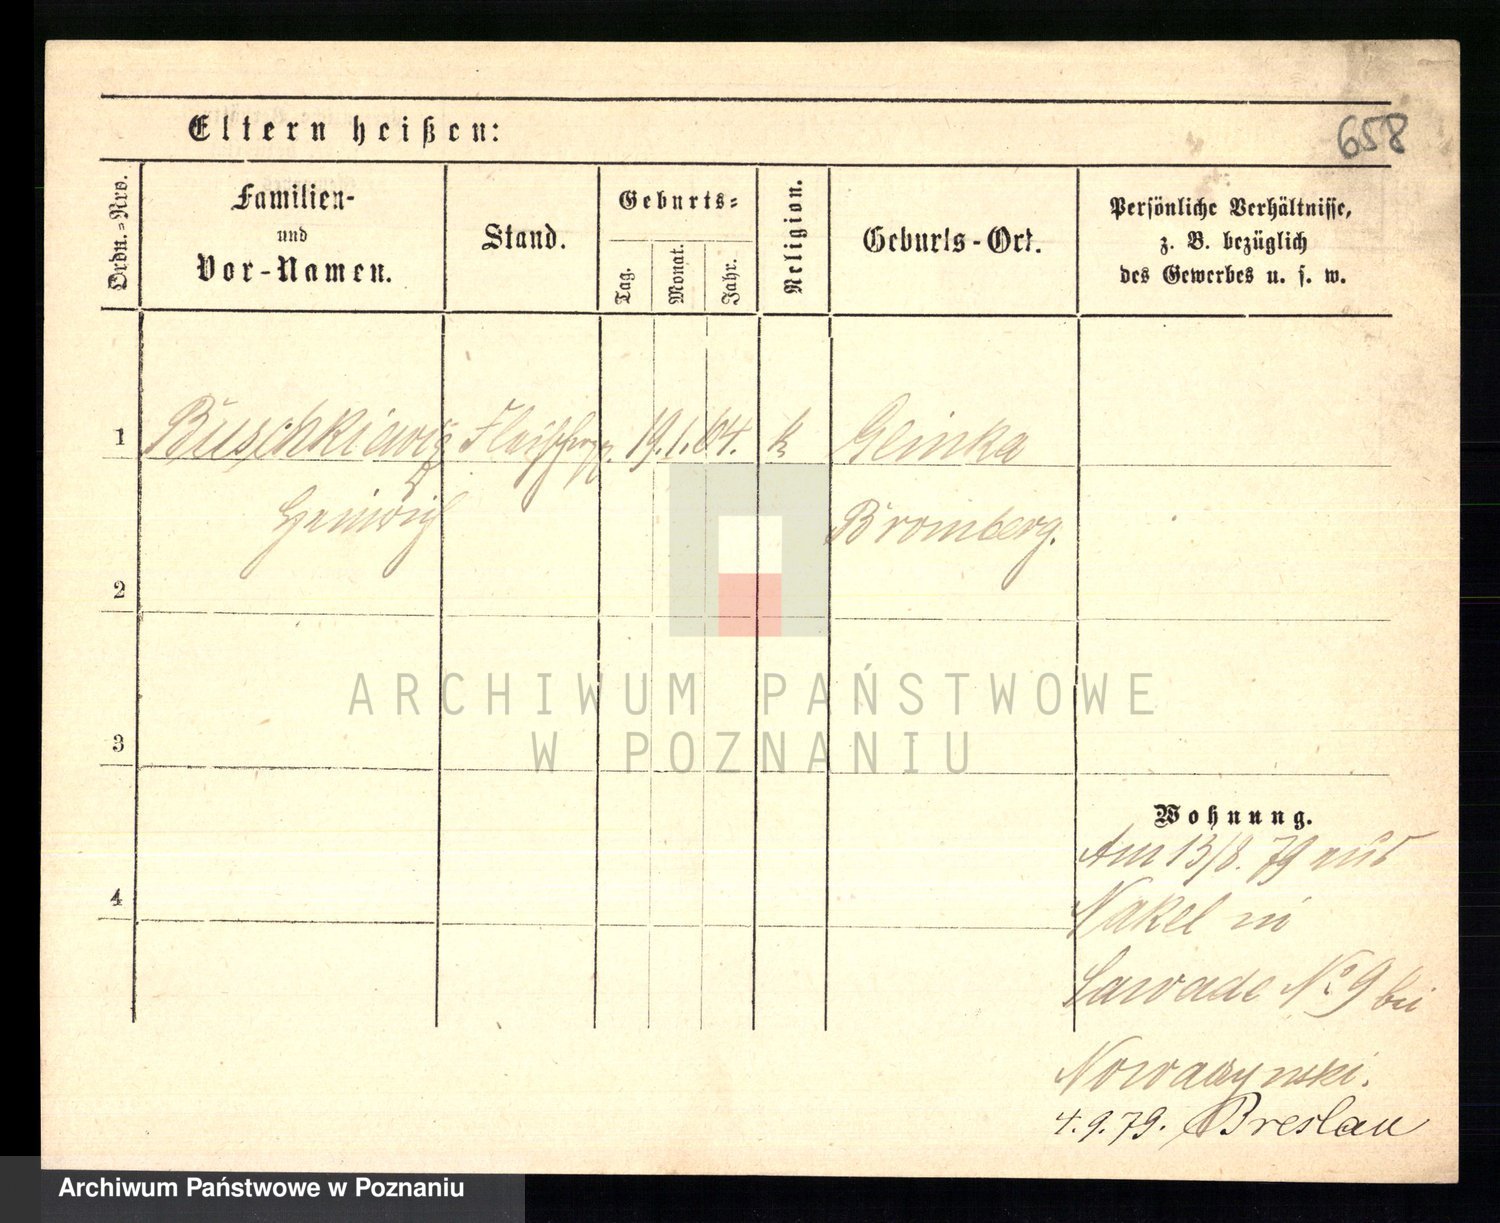 658
Eltern heißen:
Ordn.=Nro.
Familien-
und
Vor-Namen.
Stand.
Geburts=
Tag.
Monat.
Jahr.
Religion.
Geburts-Ort.
Persönliche Verhältnisse,
z. B. bezüglich
des Gewerbes u. s. w.
1 Buschkiewiz 19.1. k Glinka
Heinrich Bromberg.
2
3
ARCHIWUM PAŃSTWOWE
W POZNANIU
Wohnung.
Am 13/8. 79 aus
4
Nakel in
Sawade No 9 bei
4.9.79. Breslau
Archiwum Państwowe w Poznaniu